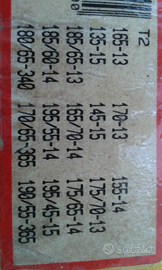 T2
165-13 170-13 155-14
135-15 145-15 175/70-13
185/65-13 165/70-14 175/65-14
185/60-14 195/55-14 195/45-15
180/65-340 170/65-365 190/55-365
subito